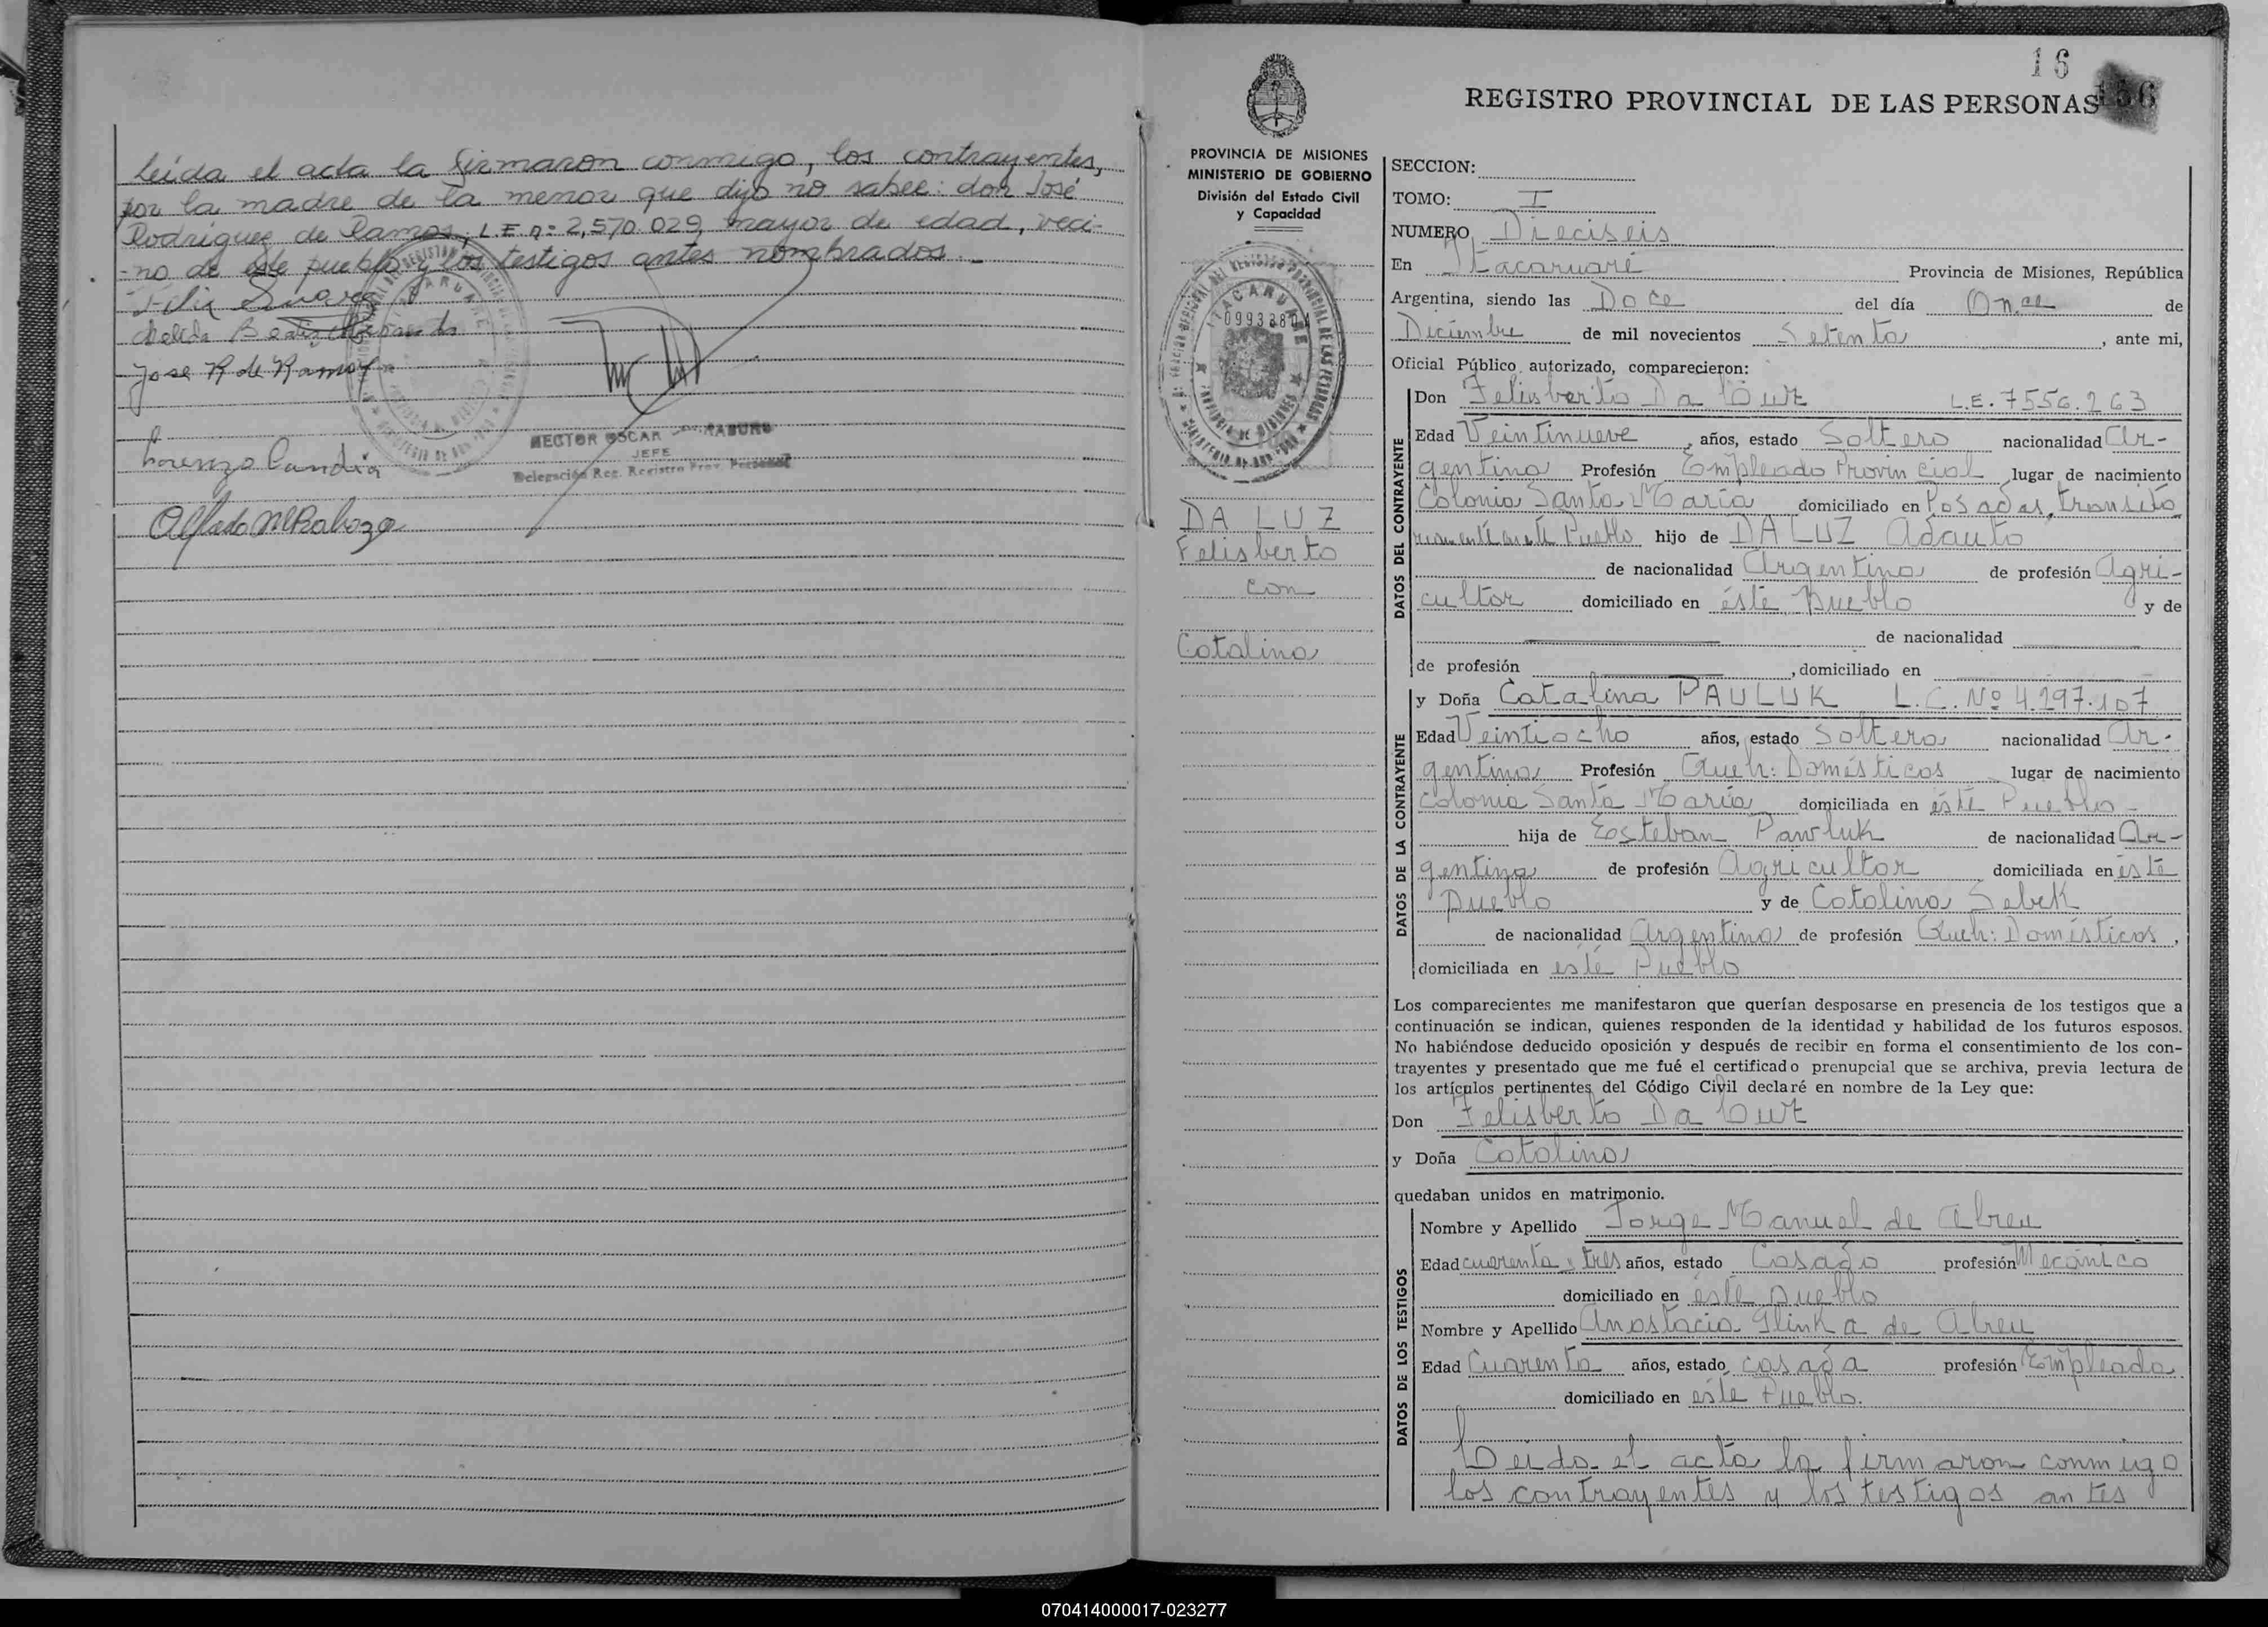 Leída el acta la firmaron conmigo, los contrayentes,
por la madre de la menor que dijo no saber: don José
Rodriguez de Ramos, L.E. nº 2,570.029, mayor de edad, veci-
-no de este pueblo y los testigos antes nombrados.-
Felix Suarez
Jose R de Ramos
Lorenzo Candia
HECTOR OSCAR
JEFE
Delegación Reg. Registro Prov. Personas
16
REGISTRO PROVINCIAL DE LAS PERSONAS
PROVINCIA DE MISIONES
MINISTERIO DE GOBIERNO
División del Estado Civil
y Capacidad
DA LUZ
Felisberto
con
Catalina
SECCION:
TOMO: I
NUMERO Dieciseis
En Itacaruaré Provincia de Misiones, República
Argentina, siendo las Doce del día Once de
Diciembre de mil novecientos Setenta, ante mi,
Oficial Público autorizado, comparecieron:
DATOS DEL CONTRAYENTE
Don Felisberto Da Luz L.E. 7556.263
Edad Veintinueve, años, estado Soltero nacionalidad Ar-
gentina Profesión Empleado Provincial lugar de nacimiento
Colonia Santa María domiciliado en Posadas, transito
riamente en este Pueblo hijo de DA LUZ Adauto
de nacionalidad Argentina de profesión Agri-
cultor domiciliado en éste Pueblo y de
de nacionalidad
de profesión , domiciliado en
DATOS DE LA CONTRAYENTE
y Doña Catalina PAULUK L.C. Nº 4.297.107
Edad Veintiocho años, estado Soltera nacionalidad Ar-
gentina Profesión Queh: Domésticos lugar de nacimiento
Colonia Santa María domiciliada en éste Pueblo-
hija de Esteban Pawluk de nacionalidad Ar-
gentina de profesión Agricultor domiciliada en éste
Pueblo y de Catalina Sebek
de nacionalidad Argentina de profesión Queh: Domésticos,
domiciliada en este Pueblo
Los comparecientes me manifestaron que querían desposarse en presencia de los testigos que a
continuación se indican, quienes responden de la identidad y habilidad de los futuros esposos.
No habiéndose deducido oposición y después de recibir en forma el consentimiento de los con-
trayentes y presentado que me fué el certificado prenupcial que se archiva, previa lectura de
los artículos pertinentes del Código Civil declaré en nombre de la Ley que:
Don Felisberto Da Luz
y Doña Catalina
quedaban unidos en matrimonio.
DATOS DE LOS TESTIGOS
Nombre y Apellido Jorge Manuel de Abreu
Edad cuarenta y tres años, estado Casado profesión Mecánico
domiciliado en éste pueblo
Nombre y Apellido Anastacia Glinka de Abreu
Edad Cuarenta años, estado casada profesión Empleada
domiciliado en este Pueblo.
Leida el acta la firmaron conmigo
los contrayentes y los testigos antes
070414000017-023277